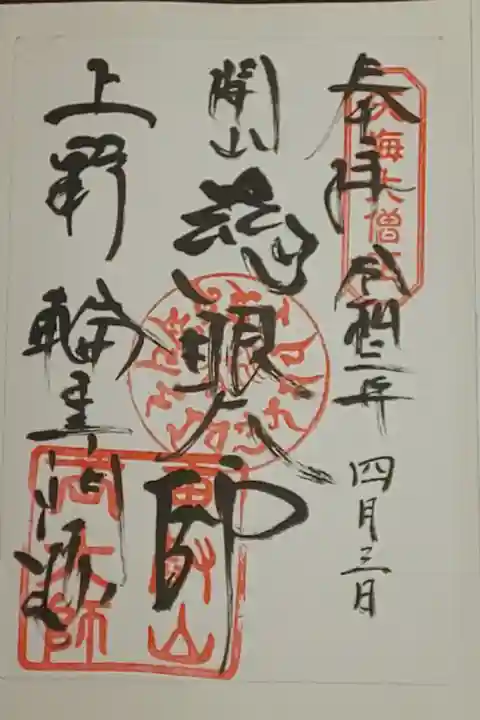 奉拝 令和三年 四月三日
天海大僧正
開山
慈眼大師
上野 輪王寺門跡
東叡山
両大師